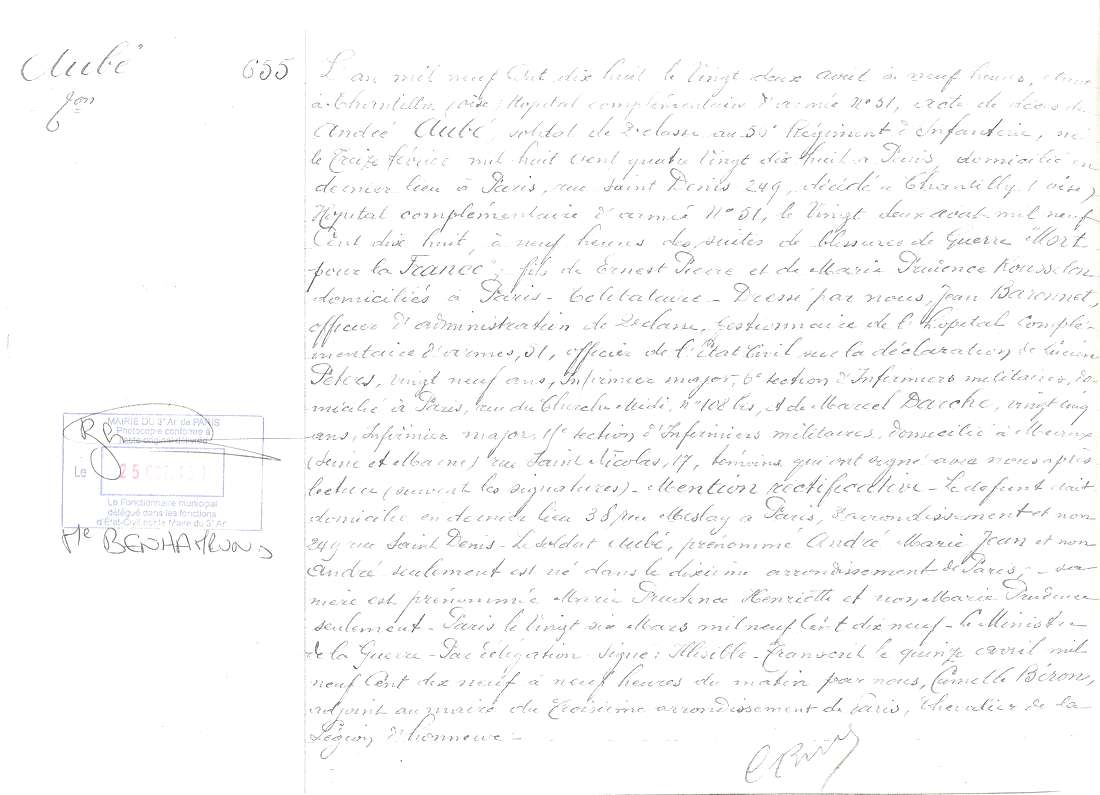 Aubé
655
L'an mil neuf Cent dix huit le Vingt deux avril à neuf heures, étant
à Chantilly (oise) Hopital complémentaire d'armée N° 51, acte de décès de
André Aubé, soldat de 2e classe au Régiment d'Infanterie, né
le Treize février mil huit cent quatre Vingt dix huit à Paris, domicilié en
dernier lieu à Paris, rue Saint Denis 249, décédé à Chantilly (oise)
Hopital complémentaire d'armée N° 51, le Vingt deux avril mil neuf
Cent dix huit, à neuf heures des suites de blessures de Guerre "Mort
pour la France", fils de Ernest Pierre et de Marie Prudence Rousselon
domiciliés à Paris - Célibataire - Dressé par nous, Jean Baronnet,
officier d'administration de 2e classe, Gestionnaire de l'hopital complé-
mentaire d'armée, 51, officier de l'Etat Civil sur la déclaration de Lucien
Peters, vingt neuf ans, Infirmier major, 6e section d'Infirmiers militaires, do-
micilié à Paris, rue du Cherche Midi, n° 108 bis, et de Marcel Darche, vingt cinq
ans, Infirmier major, section d'Infirmiers militaires, domicilié à Meaux
(Seine et Marne) rue Saint Nicolas, 17, témoins qui ont signé avec nous après
lecture (suivent les signatures) - Mention rectificative - Le défunt était
domicilié en dernier lieu 38 rue Meslay à Paris, 3e arrondissement et non
249 rue Saint Denis - Le soldat Aubé, prénommé André Marie Jean et non
André seulement est né dans le dixième arrondissement de Paris, - sa
mère est prénommée Marie Prudence Henriette et non Marie Prudence
seulement - Paris le Vingt six Mars mil neuf Cent dix neuf - Le Ministre
de la Guerre - Par délégation signé : Illisible - Transcrit le quinze avril mil
neuf Cent dix neuf à neuf heures du matin par nous, Camille Béron,
adjoint au maire du Troisième arrondissement de Paris, Chevalier de la
Légion d'honneur -
MAIRIE DU 3e Ar de PARIS
Photocopie conforme à
Le 25
Le Fonctionnaire municipal
délégué dans les fonctions
d'Etat-Civil de Maire du 3e Ar
Mle BENHAMOND